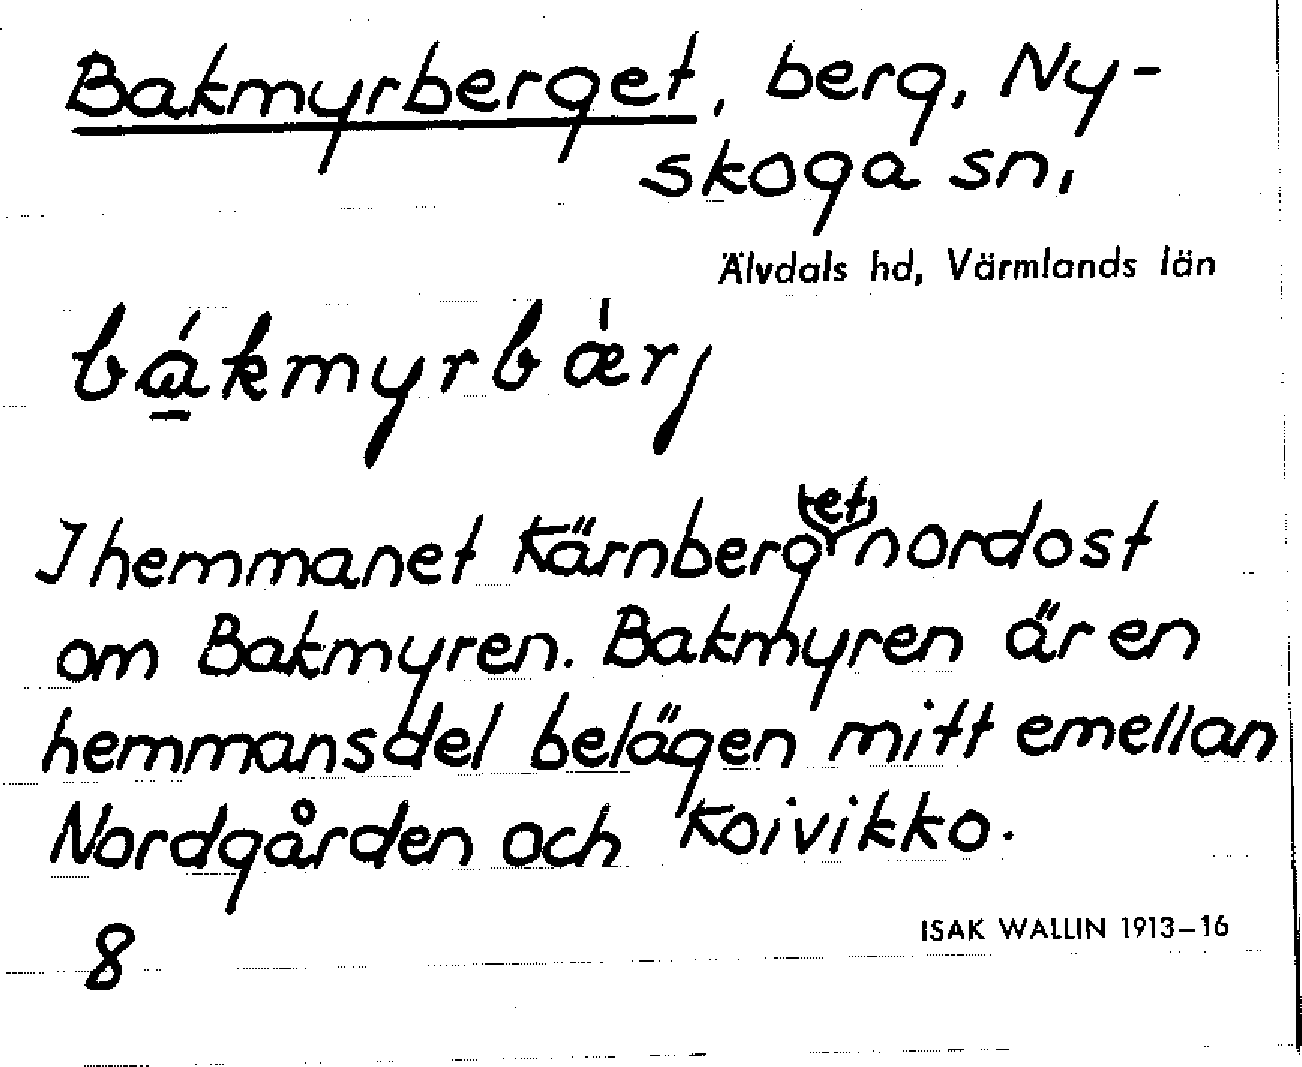 Bakmyrberget, berg, Ny-
skoga sn,
Älvdals hd, Värmlands län
bá̱kmyrbǽrj
I hemmanet Kärnberg(et) nordost
om Bakmyren. Bakmyren är en
hemmansdel belägen mitt emellan
Nordgården och Koivikko.
8
ISAK WALLIN 1913–16